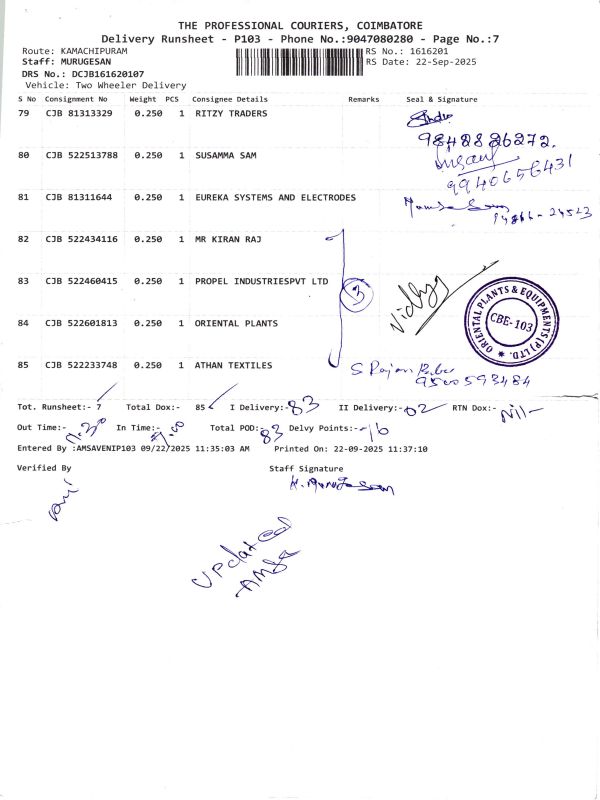 THE PROFESSIONAL COURIERS, COIMBATORE
Delivery Runsheet - P103 - Phone No.:9047080280 - Page No.:7
Route: KAMACHIPURAM RS No.: 1616201
Staff: MURUGESAN RS Date: 22-Sep-2025
DRS No.: DCJB161620107
Vehicle: Two Wheeler Delivery
S No Consignment No Weight PCS Consignee Details Remarks Seal & Signature
79 CJB 81313329 0.250 1 RITZY TRADERS
9842826272.
80 CJB 522513788 0.250 1 SUSAMMA SAM
9940656431
81 CJB 81311644 0.250 1 EUREKA SYSTEMS AND ELECTRODES
82 CJB 522434116 0.250 1 MR KIRAN RAJ
83 CJB 522460415 0.250 1 PROPEL INDUSTRIESPVT LTD
3
Vidhya
ORIENTAL PLANTS & EQUIPMENTS (P) LTD.
CBE-103
84 CJB 522601813 0.250 1 ORIENTAL PLANTS
85 CJB 522233748 0.250 1 ATHAN TEXTILES
S Rajan Babu
9500593484
Tot. Runsheet:- 7 Total Dox:- 85 I Delivery:- 83 II Delivery:- 02 RTN Dox:- Nil-
Out Time:- In Time:- Total POD:- 83 Delvy Points:- 16
Entered By :AMSAVENIP103 09/22/2025 11:35:03 AM Printed On: 22-09-2025 11:37:10
Verified By Staff Signature
K. Murugesan
Updated